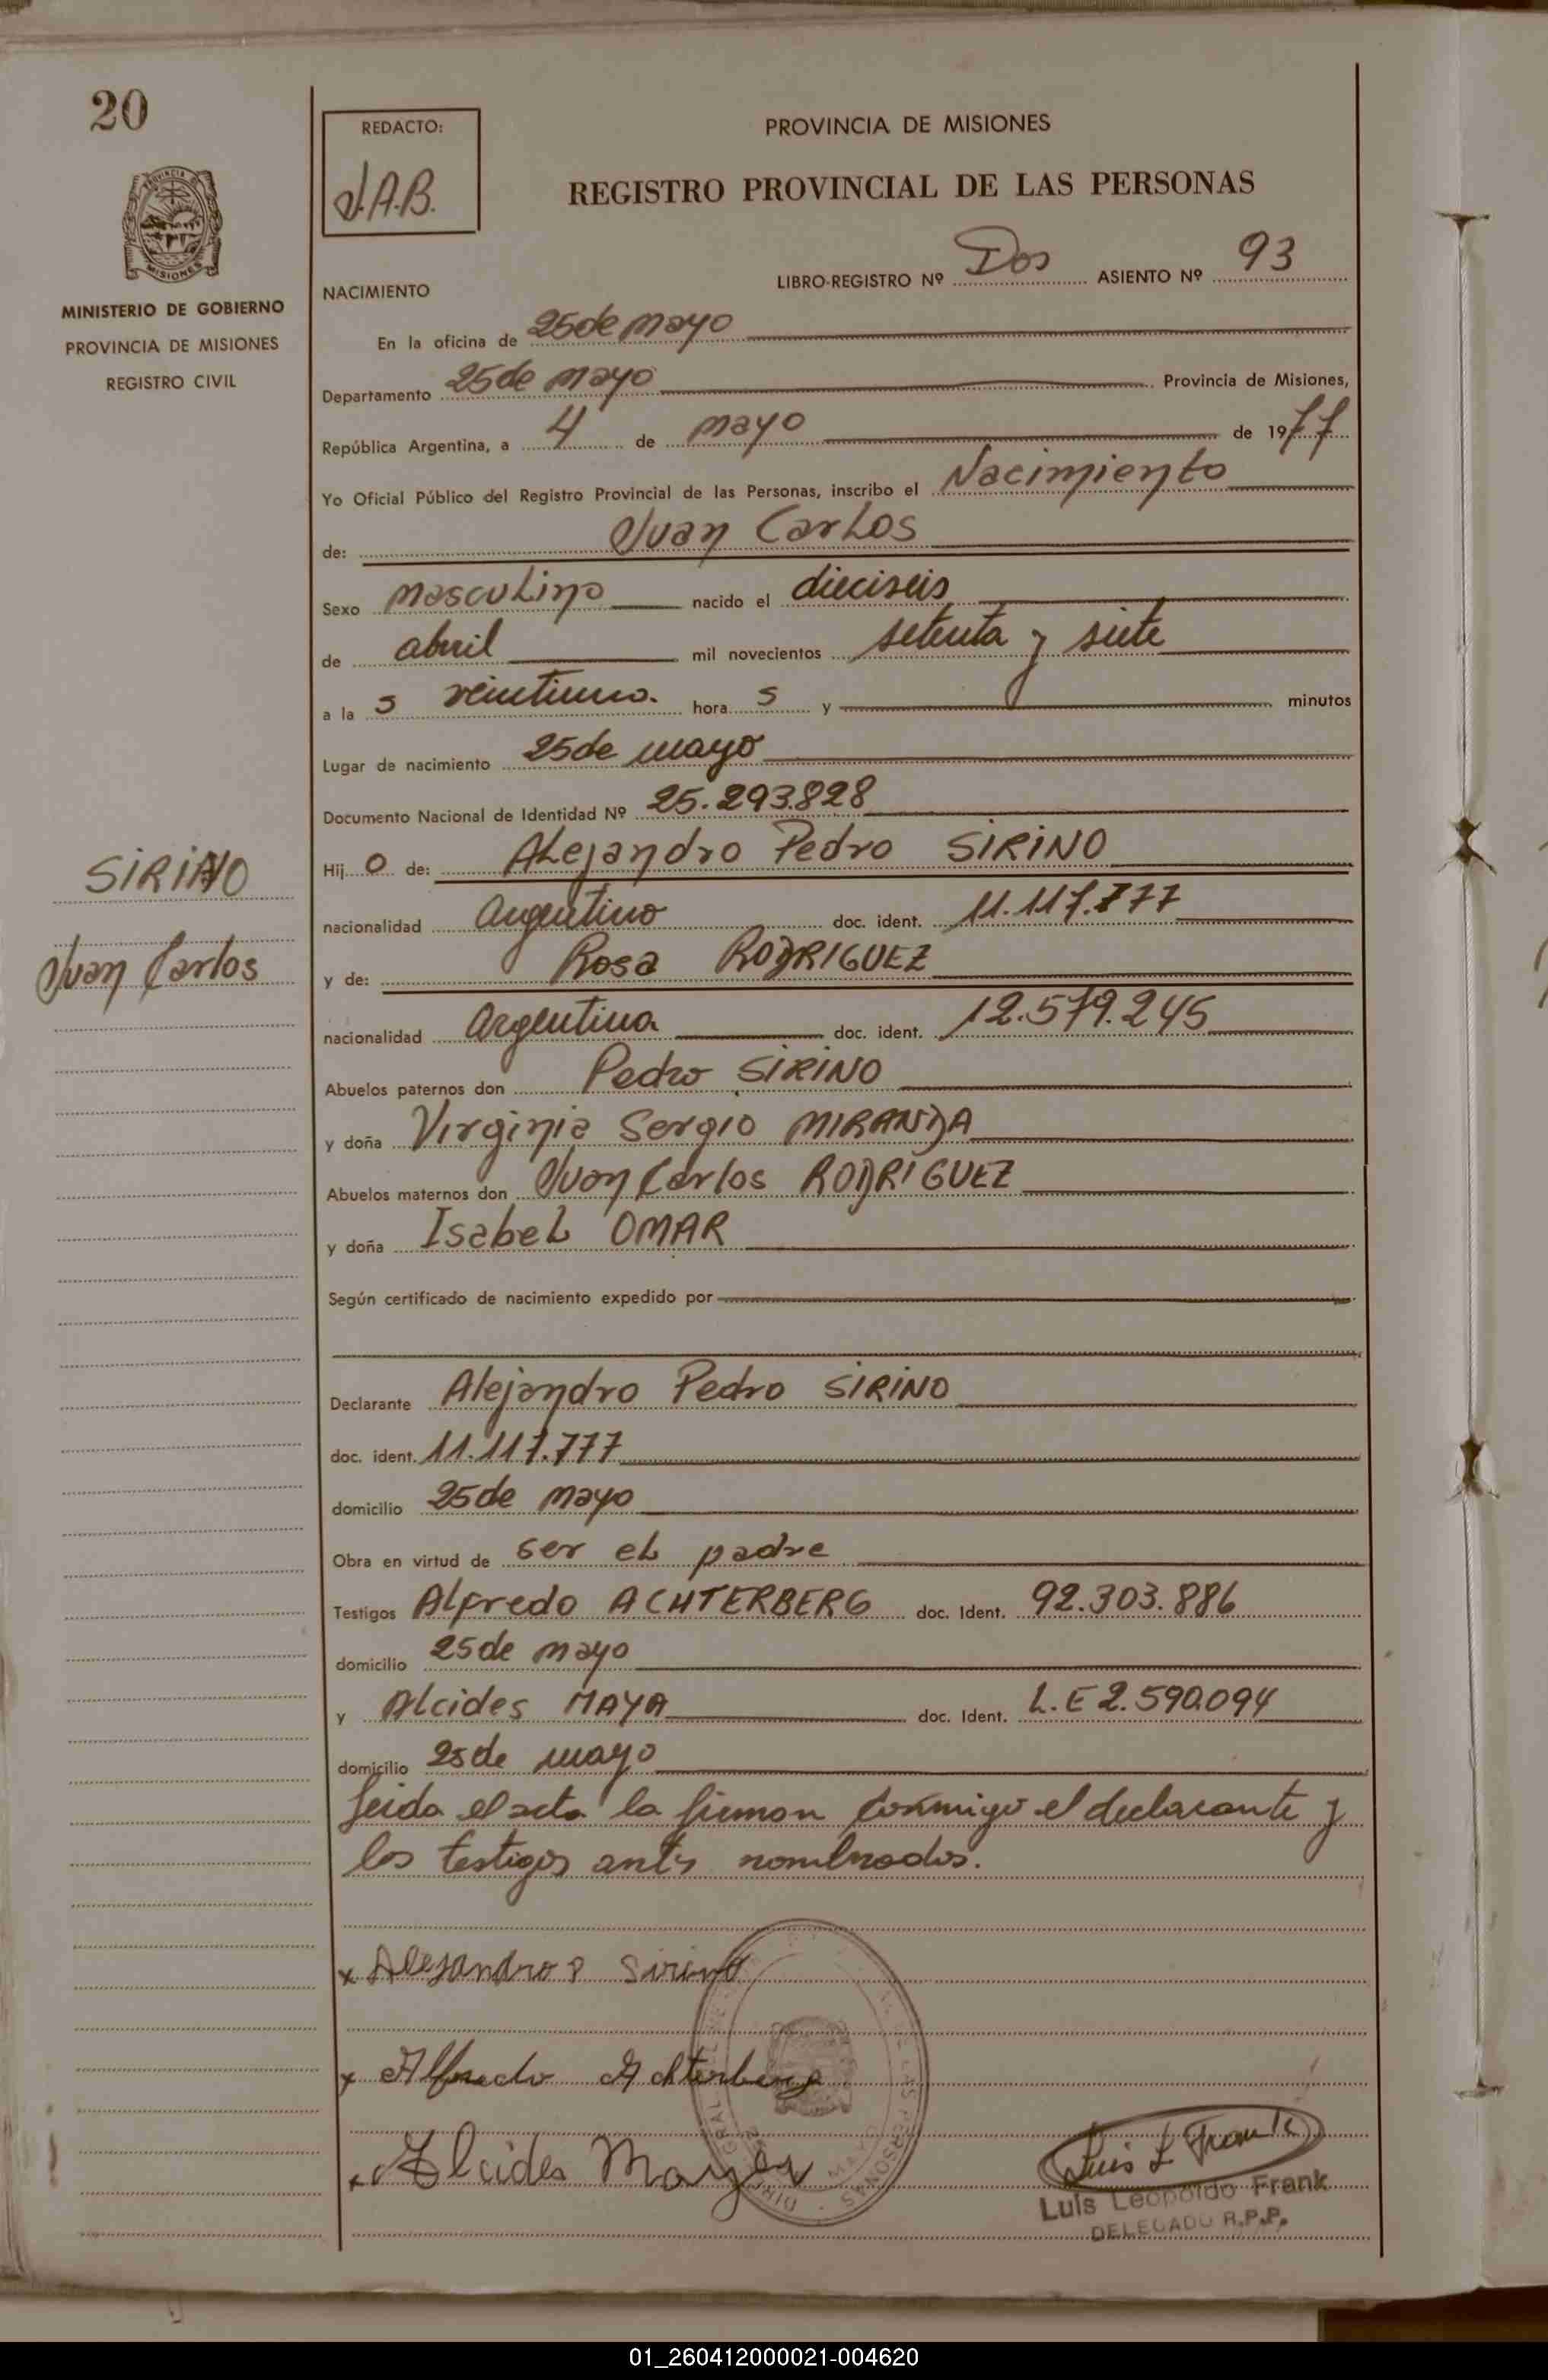 20
REDACTO:
J.A.B.
PROVINCIA DE MISIONES
REGISTRO PROVINCIAL DE LAS PERSONAS
MINISTERIO DE GOBIERNO
PROVINCIA DE MISIONES
REGISTRO CIVIL
NACIMIENTO LIBRO-REGISTRO Nº Dos ASIENTO Nº 93
En la oficina de 25 de mayo
Departamento 25 de mayo Provincia de Misiones,
República Argentina, a 4 de mayo de 1977
Yo Oficial Público del Registro Provincial de las Personas, inscribo el Nacimiento
de: Juan Carlos
Sexo masculino nacido el dieciseis
de abril mil novecientos setenta y siete
a la s veintiuno. hora s y minutos
Lugar de nacimiento 25 de mayo
Documento Nacional de Identidad Nº 25.293.828
Hij o de: Alejandro Pedro SIRINO
nacionalidad Argentino doc. ident. 11.117.777
y de: Rosa RODRIGUEZ
nacionalidad Argentina doc. ident. 12.579.245
Abuelos paternos don Pedro SIRINO
y doña Virginia Sergio MIRANDA
Abuelos maternos don Juan Carlos RODRIGUEZ
y doña Isabel OMAR
Según certificado de nacimiento expedido por
Declarante Alejandro Pedro SIRINO
doc. ident. 11.117.777
domicilio 25 de mayo
Obra en virtud de ser el padre
Testigos Alfredo ACHTERBERG doc. Ident. 92.303.886
domicilio 25 de mayo
y Alcides MAYA doc. Ident. L.E 2.590.094
domicilio 25 de mayo
Leida el acta la firman conmigo el declarante y
los testigos antes nombrados.
SIRINO
Juan Carlos
x Alejandro P Sirino
x Alfredo Achterberg
x Alcides Maya
Luis L Frank
Luis Leopoldo Frank
DELEGADO R.P.P.
01_260412000021-004620